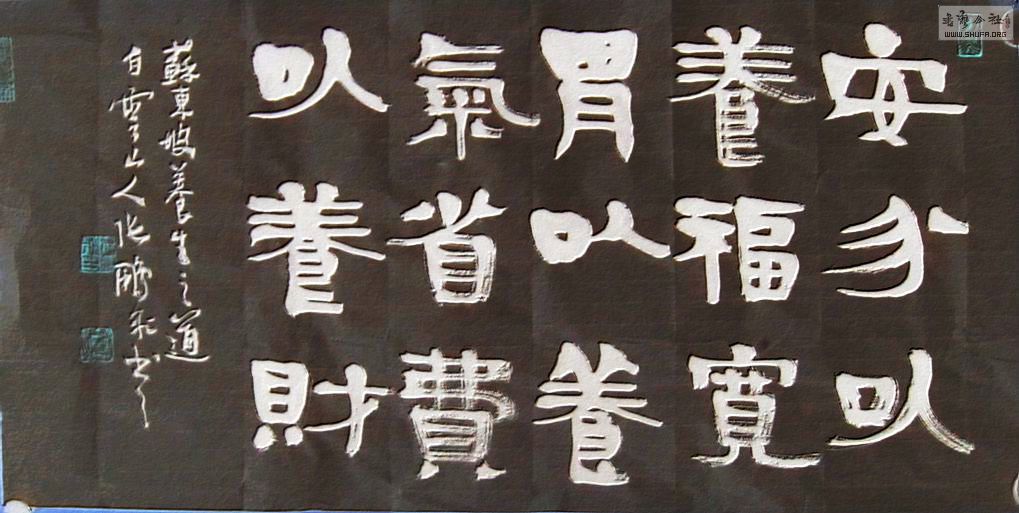 安分以
養福寬
胃以養
氣省費
以養財
蘇東坡養生之道
白雲山人張鵬飛書
書法会社
WWW.SHUFA.ORG